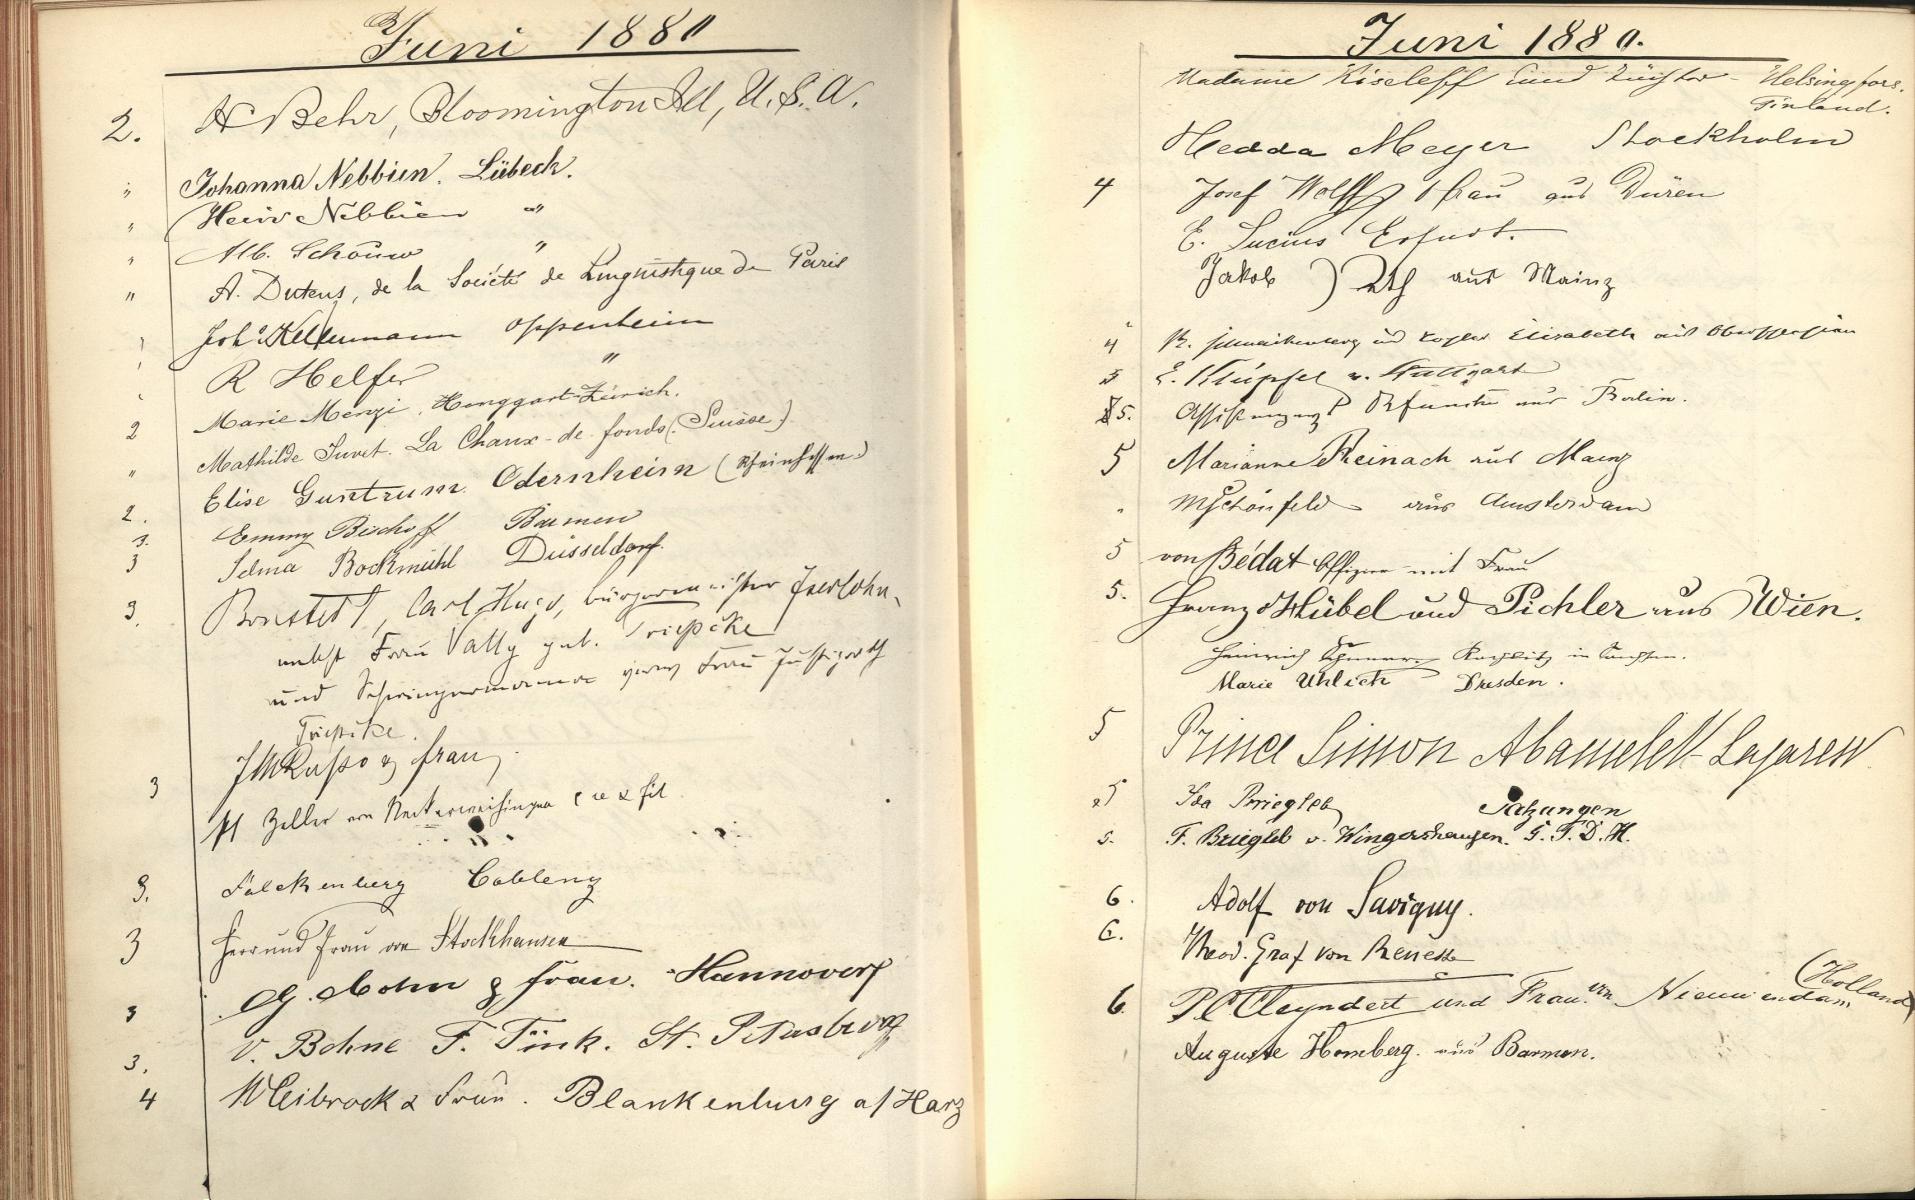 Juni 1880
2. H Behr, Bloomington Ill, U.S.A.
" Johanna Nebbien. Lübeck.
" Heinr Nebbien "
" Alb. Schöuw "
" A. Dutens, de la Société de Linguistique de Paris
Joh. Kellermann Oppenheim
R Helfer "
2 Marie Menzi, Henggart-Zürich.
" Mathilde Juvet. La Chaux-de-fonds (Suisse)
2. Elise Guntrum. Odernheim (Rheinhessen)
3. Emmy Bischoff Barmen
3 Selma Bockmühl Düsseldorf.
3. Bonstedt, Carl Hugo, bürgermeister Iserlohn,
nebst Frau Vally geb. Triepcke
und Schwiegermama Frau Justizrath
Triepcke.
3 & frau
Zeller von
3. Falckenberg Coblenz
3 Herr und Frau von Stockhausen
3 G. Cohn & frau. Hannover
3. V. Bohne F. Fink. St. Petersburg
4 W Leibrock & Frau. Blankenburg a/Harz
Juni 1880.
Madame Kiseleff und Töchter - Helsingfors.
Finland.
Hedda Meyer Stockholm
4 Josef Wolff & frau aus Düren
E. Lucius Erfurt.
Jakob aus Mainz
4 und Tochter Elisabeth aus
5 E. Klüpfel v. Stuttgart
5. aus Berlin.
5 Marianne Reinach aus Mainz
" M Schönfeld aus Amsterdam
5 von Bédat Offizier mit Frau
5. Franz Hübel und Pichler aus Wien.
Heinrich Rochlitz in Sachsen.
Marie Uhlich Dresden.
5 Prince Simon Abamelek Lazarew
5 Ida Briegleb Satzungen
5. F. Briegleb v. Wingershausen. G. T. D. H.
6. Adolf von Savigny.
6. Theod. Graf von Renesse
6. P C Cleyndert und Frau von Nieuwendam (Holland)
Auguste Homberg. aus Barmen.